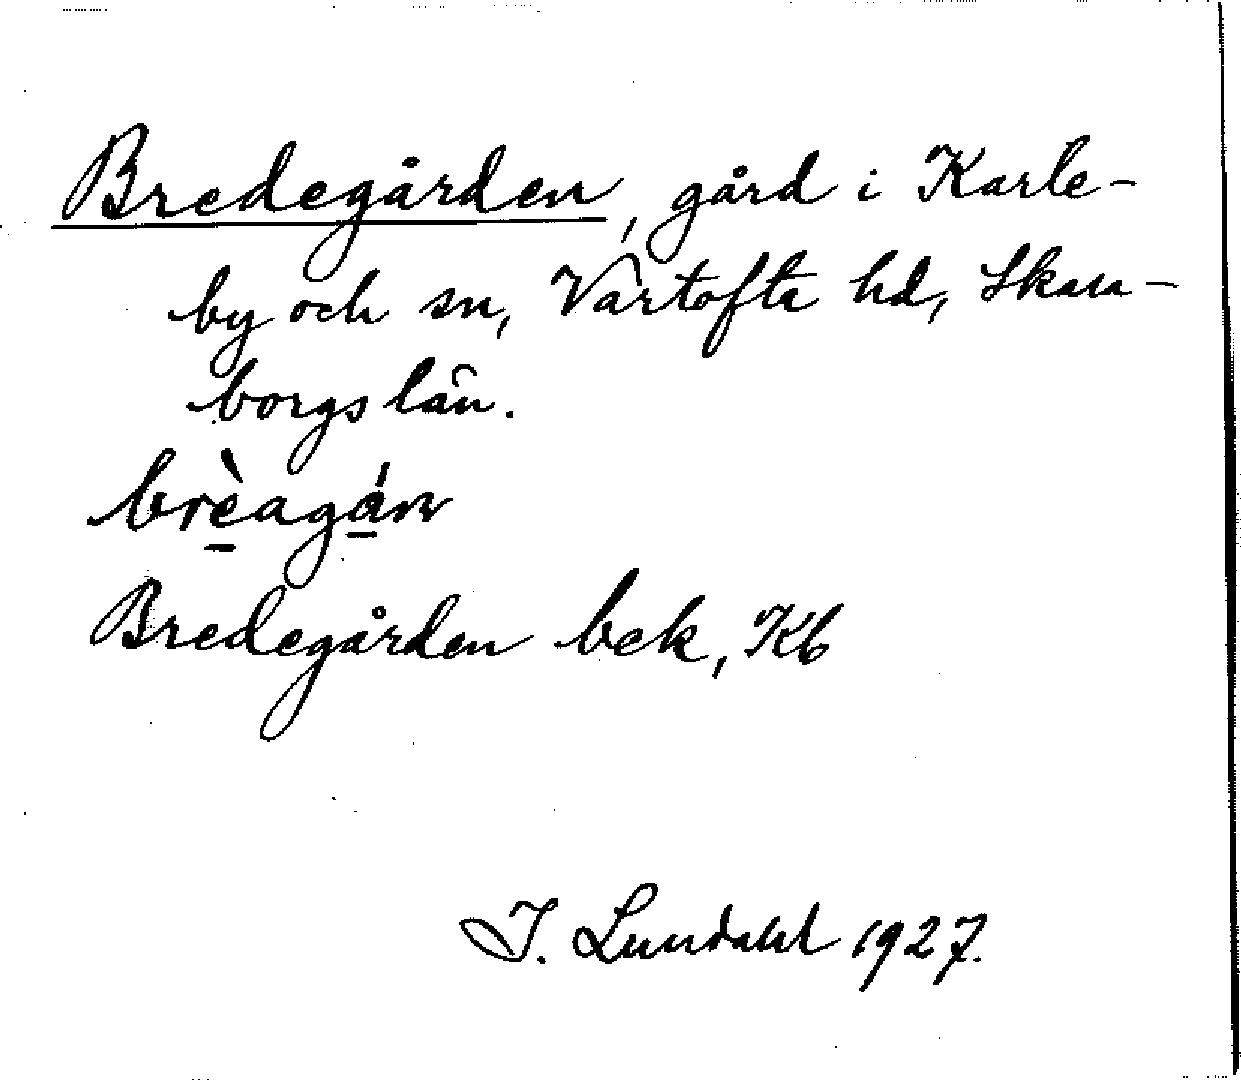 Bredegården, gård i Karle-
by och sn, Vartofta hd, Skara-
borgs län.
brèagán
Bredegården bek, Kb
I. Lundahl 1927.